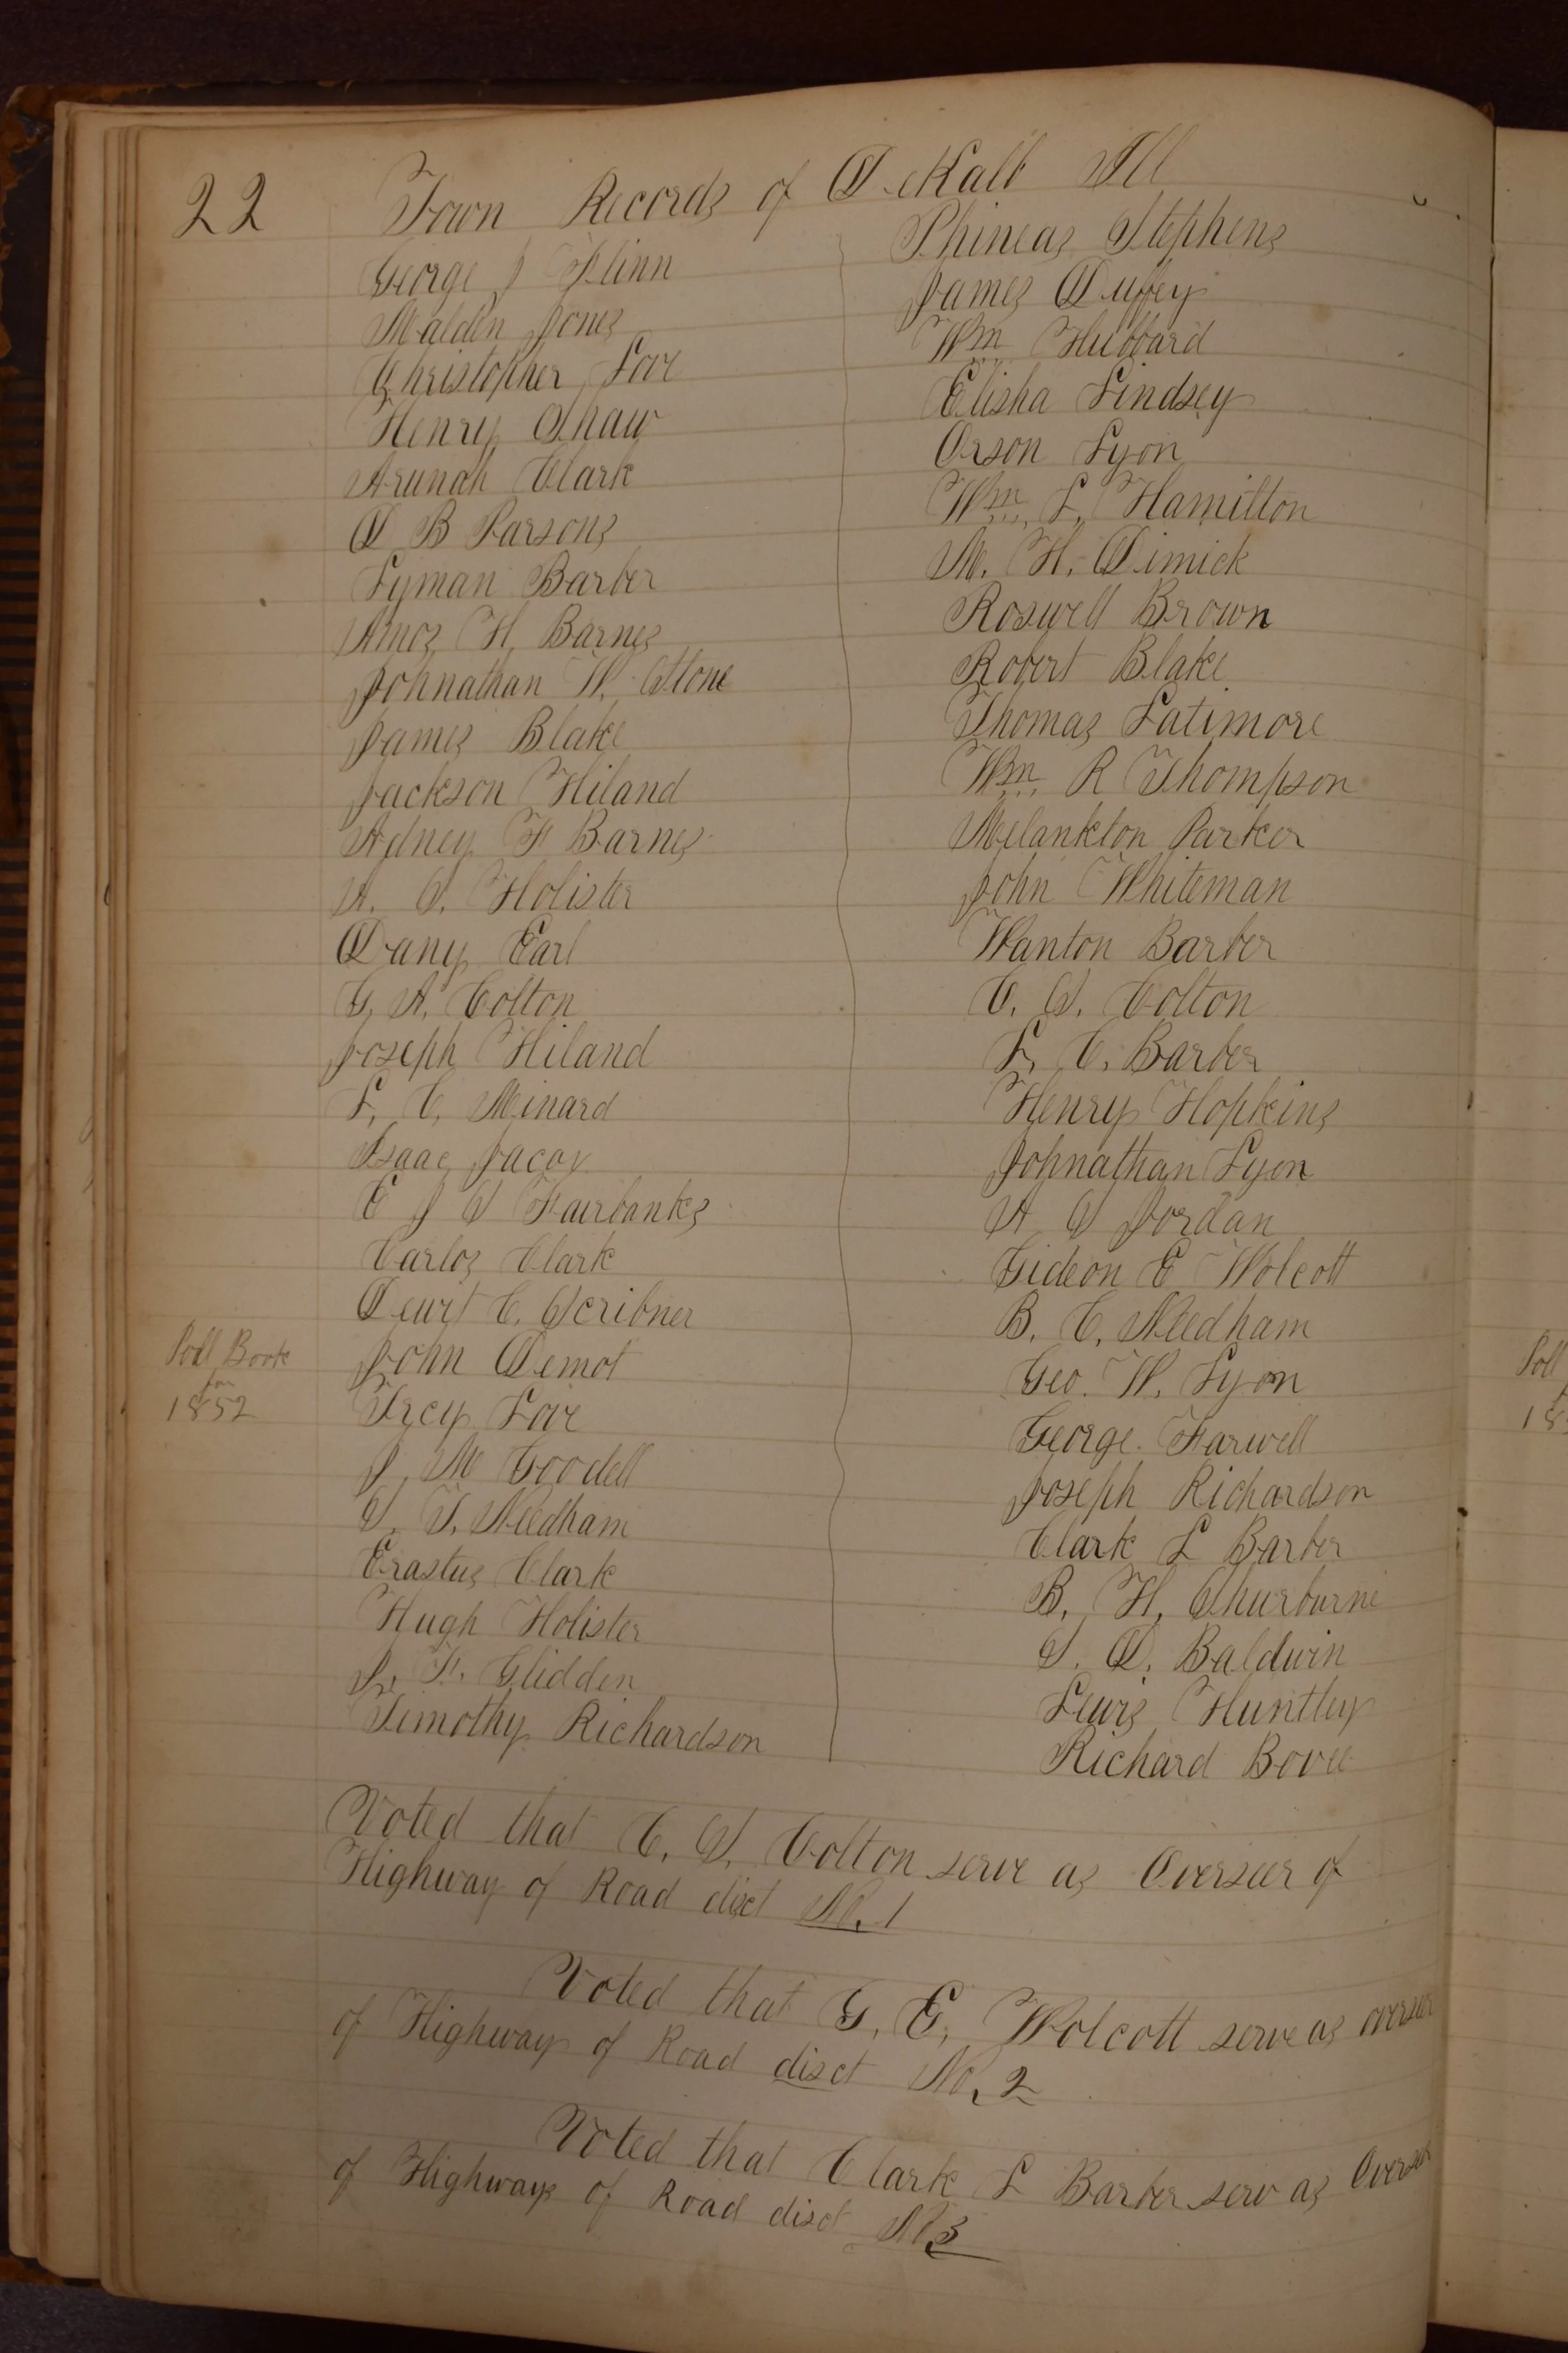 22 Town Records of DeKalb Ill
George J Flinn
Maldin Jones
Christopher Love
Henry Shaw
Arunah Clark
D B Parsons
Lyman Barber
Amos H. Barnes
Johnathan W. Stone
James Blake
Jackson Hiland
Adney F Barnes
A. S. Holister
Dany Earl
G. A. Colton
Joseph Hiland
L. C. Minard
Isaac Jacox
E J S Fairbanks
Carlos Clark
Dewit C. Scribner
John Demot
Ircy Love
J. M Goodell
S. T. Needham
Erastus Clark
Hugh Holister
J. F. Glidden
Timothy Richardson
Poll Book
for
1852
Phineas Stephens
James Duffey
Wm Hubbard
Elisha Lindsey
Orson Lyon
Wm. L. Hamilton
M. H. Dimick
Roswell Brown
Robert Blake
Thomas Latimore
Wm. R Thompson
Melankton Parker
John Whiteman
Wanton Barber
C. S. Colton
L. C. Barber
Henry Hopkins
Johnathan Lyon
A S Jordan
Gideon E Wolcott
B. C. Needham
Geo. W. Lyon
George Farwell
Joseph Richardson
Clark L Barber
B. H. Shurburne
S. D. Baldwin
Lewis Huntley
Richard Bovee
Voted that C. S. Colton serve as Overseer of
Highway of Road disct No. 1
Voted that G. E. Wolcott serve as overseer
of Highways of Road disct No. 2
Voted that Clark L Barber serv as Overseer
of Highways of Road disct No 3
Poll